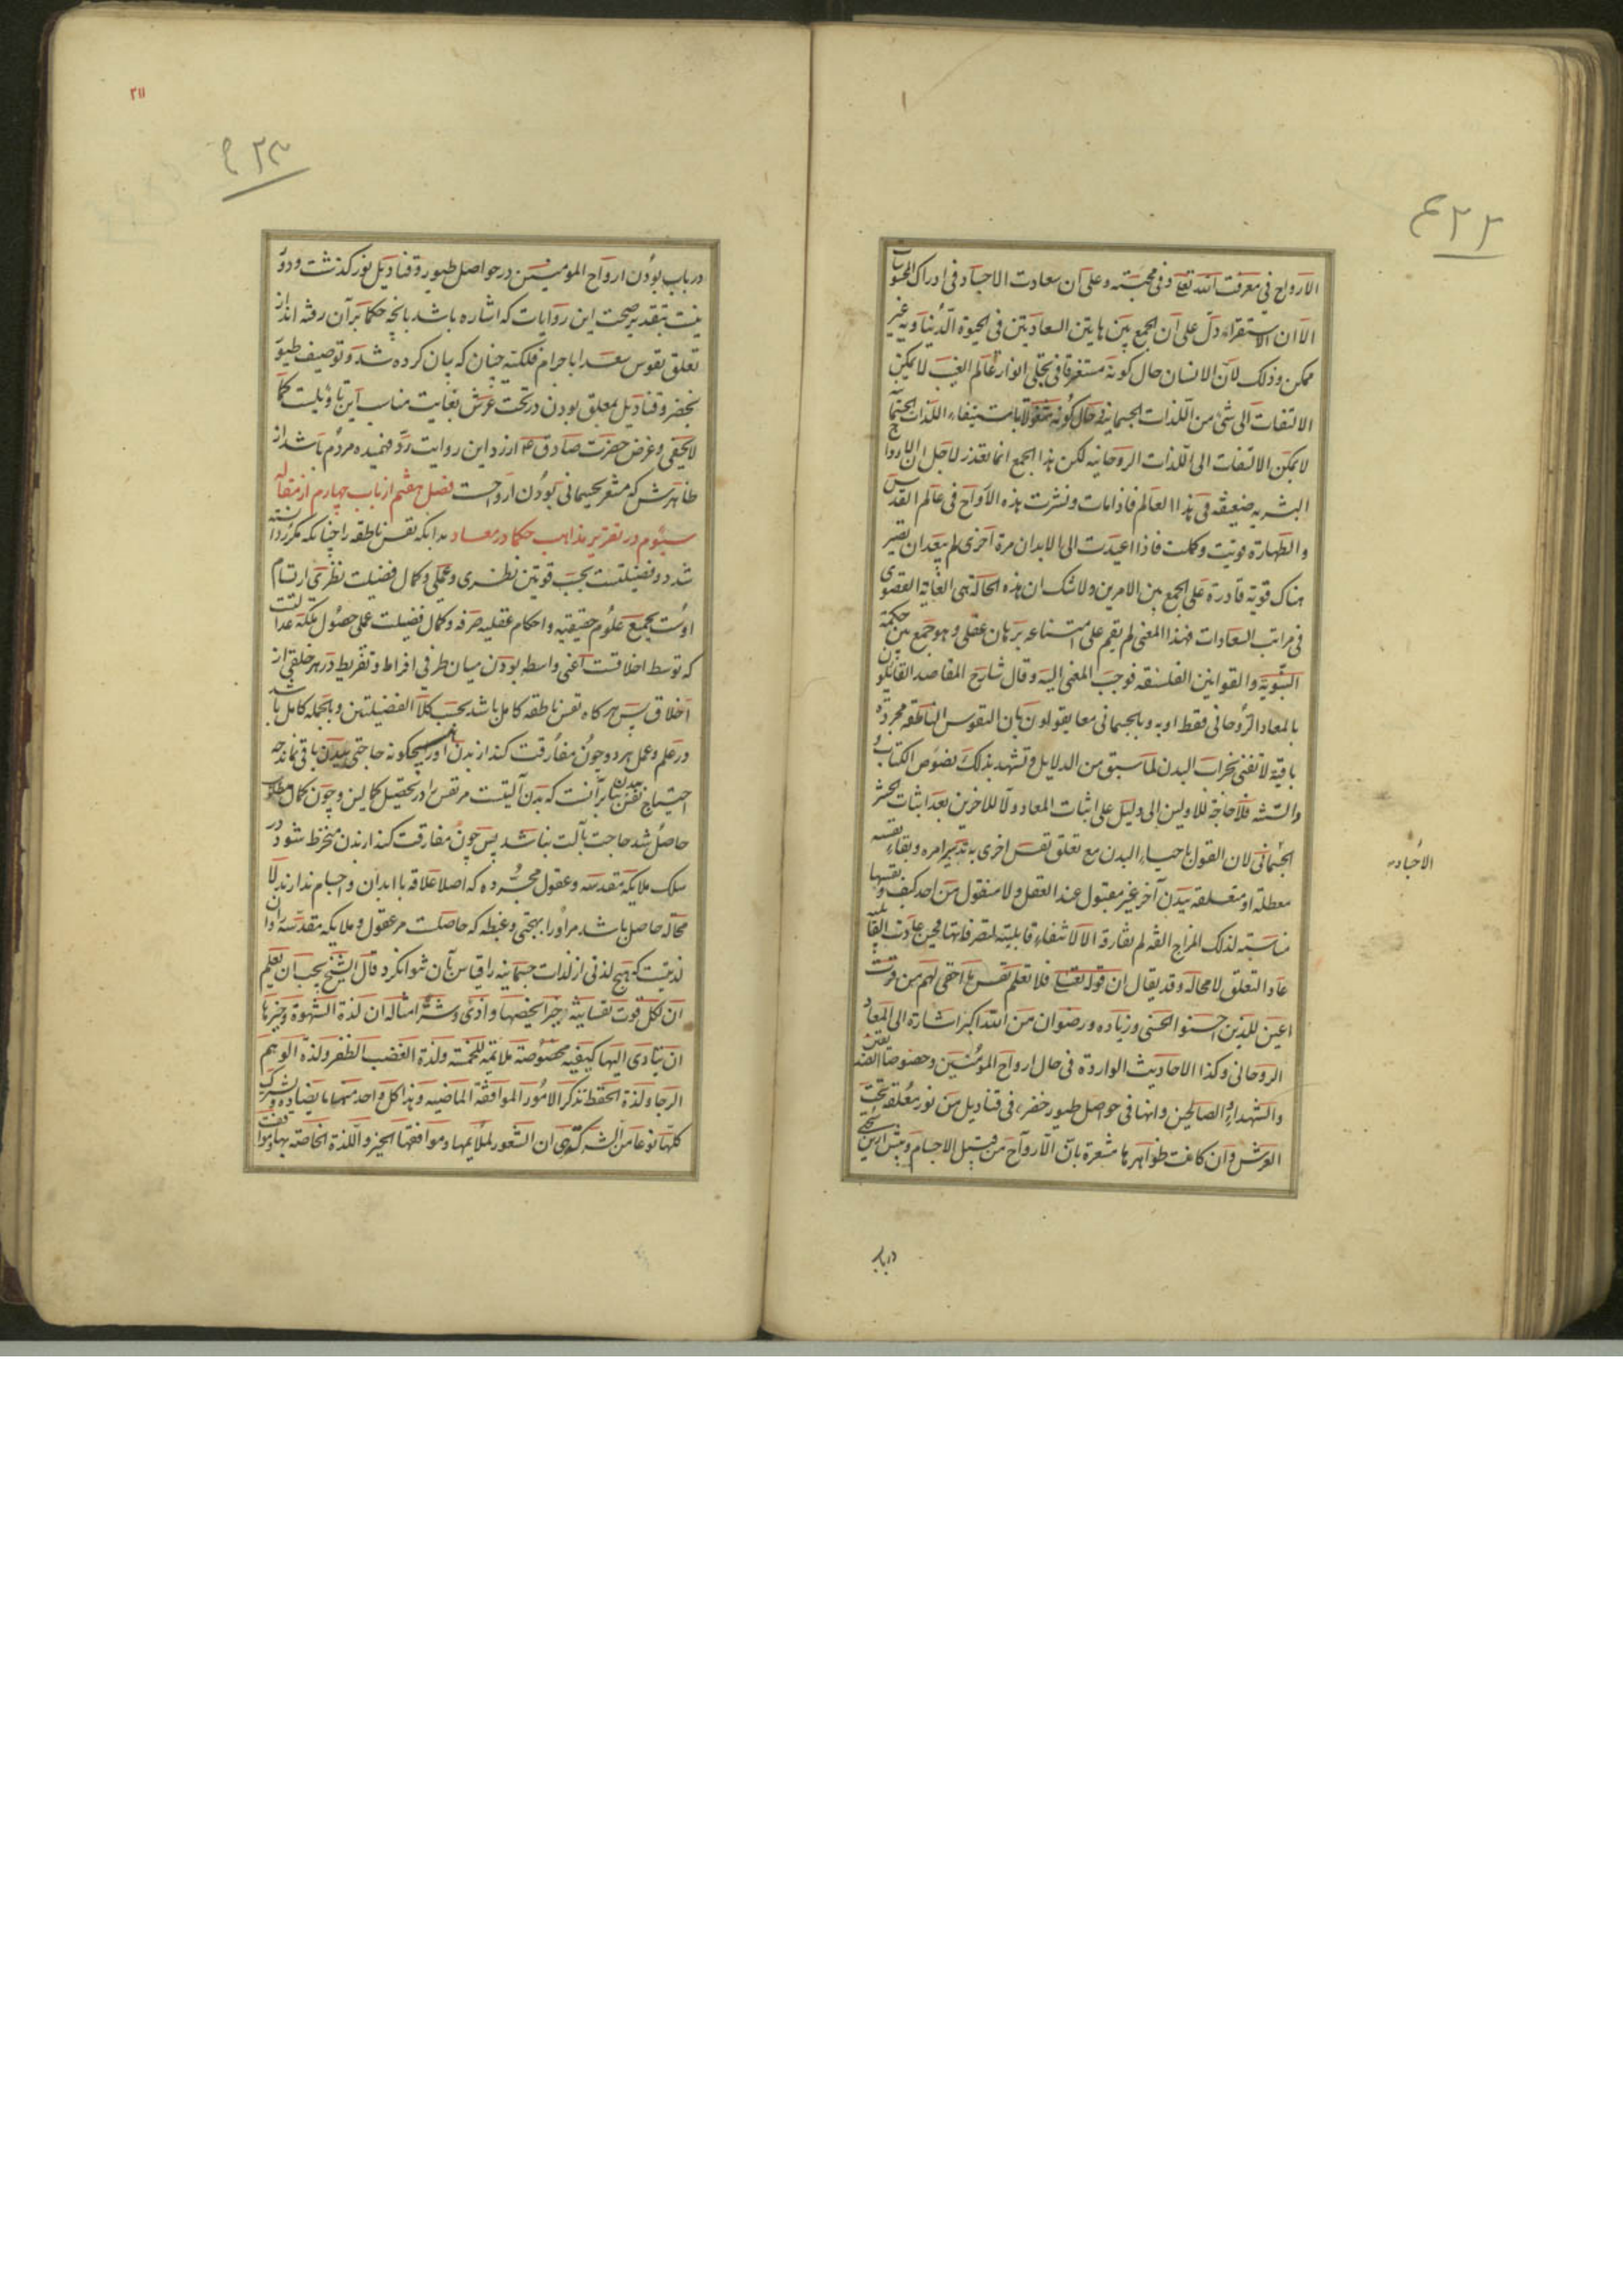 الارواح فی معرفت الله تعالی و فی محبته و علی ان سعادت الاجساد فی ادراک المحسوسات
الا ان الاستقراء دل علی ان الجمع بین هاتین السعادتین فی الحیوة الدنیاویه غیر
ممکن و ذلک لان الانسان حال کونه مستغرقا فی تجلی انوار عالم الغیب لا یمکن
الالتفات الی شیٔ من اللذات الجسمانیه و حال کونه مشغولا باستیفاء اللذات الجسمانیة
لا یمکن الالتفات الی اللذات الروحانیه لکن هذا الجمع انما تعذر لاجل ان الارواح
البشریه ضعیفه فی هذا العالم فاذا مات و نشرت هذه الارواح فی عالم القدس
و الطهارة قویت و کملت فاذا اعیدت الی الابدان مرة اخری لم یبعد ان تصیر
هناک قویة قادرة علی الجمع بین الامرین و لا شک ان هذه الحالة هی الغایة القصوی
فی مراتب السعادات فهذا المعنی لم یقم علی امتناعه برهان عقلی و هو جمع بین حکمة
النبویة و القوانین الفلسفه فوجب المغنی الیه و قال شارح المقاصد القایلون
بالمعاد الروحانی فقط او به و بالجسمانی معا یقولون بان النفوس الناطقه مجردة
باقیة لا تفنی بخراب البدن لما سبق من الدلایل و تشهد بذلک نصوص الکتاب
و السنه فلا حاجة للاولین الی دلیل علی اثبات المعاد و لا للاخرین بعد اثبات حشر
الجسمانی لان القول باحیاء البدن مع تعلق نفس اخری به تدبیر امره و بقاء نفسه
معطلة او متعلقه ببدن آخر غیر مقبول عند العقل و لا منقول من احد کیف و نفسها
مناسبة لذلک المزاج الفه لم تفارقه الا لانتفاء قابلیته لتصرفاتها فحین عادت القابلیه
عاد التعلق لا محاله و قد یقال ان قوله تعالی فلا تعلم نفس ما اخفی لهم من قرت
اعین للذین احسنوا الحسنی و زیاده و رضوان من الله اکبر اشارة الی المعاد
الروحانی و کذا الاحادیث الواردة فی حال ارواح المؤمنین و خصوصا الصدیقین
و الشهداء و الصالحین و انها فی حواصل طیور خضر فی قنادیل من نور معلقه تحت
العرش و ان کانت ظواهرها مشعرة بان الارواح من قبیل الاجسام و پیش ازین سخنی
در باب
الأجساد
۲۱۱
در باب بودن ارواح المومنین در حواصل طیور و قنادیل نور گذشت و دور
نیست بتقدیر صحت این روایات که اشاره باشد بانچه حکما بر آن رفته اند از
تعلق نفوس سعدا باجرام فلکیه چنان که بیان کرده شد و توصیف طیور
بخضر و قنادیل بمعلق بودن در تحت عرش بغایت مناسب این تاویلست کما
لا یخفی و غرض حضرت صادق ع از رد این روایت رد فهمیده مردم باشد از
ظاهرش که مشعر بجسمانی بودن ارواحست فصل هفتم از باب چهارم از مقاله
سیوم در تقریر مذاهب حکما در معاد بدانکه نفس ناطقه را چنانکه مکرر دانسته
شد دو فضیلتست بحسب قوتین نظری و عملی و کمال فضیلت نظری ارتسام
اوست بجمیع علوم حقیقیه و احکام عقلیه صرفه و کمال فضیلت عملی حصول ملکه عدالتست
که توسط اخلاقست اعنی واسطه بودن میان طرفی افراط و تفریط در هر خلقی از
اخلاق پس هرگاه نفس ناطقه کامل باشد بحسب کلا الفضیلتین و بالجمله کامل باشد
در علم و عمل هر دو چون مفارقت کند از بدن او را هیچگونه حاجتی ببدن باقی نماند چه
احتیاج نفس ببدن بنا بر آنست که بدن آلتیست مر نفس را در تحصیل کمالش و چون کمال مطلوب
حاصل شد حاجت بآلت نباشد پس چون مفارقت کند از بدن منخرط شود در
سلک ملایکه مقدسه و عقول مجرده که اصلا علاقه با ابدان و اجسام ندارند لا
محاله حاصل باشد مر او را بهجتی و غبطه که حاصلست مر عقول و ملایکه مقدسه را و آن
لذتیست که هیچ لذتی از لذات جسمانیه را قیاس بآن نتوان کرد قال الشیخ یجب ان تعلم
ان لکل قوت نفسانیة خیرا یخصها و اذی و شرا مثاله ان لذة الشهوة و خیرها
ان یتادی الیها کیفیه محسوصة ملایمه للخمسة و لذة الغضب الظفر و لذة الوهم
الرجا و لذة الحفظ تذکر الامور الموافقة الماضیه و اذی کل واحد منها ما یضاده و یشترک
کلها نوعا من الشرکة فی ان الشعور بملایمها و موافقها الخیر و اللذة الخاصة بها و موافقت